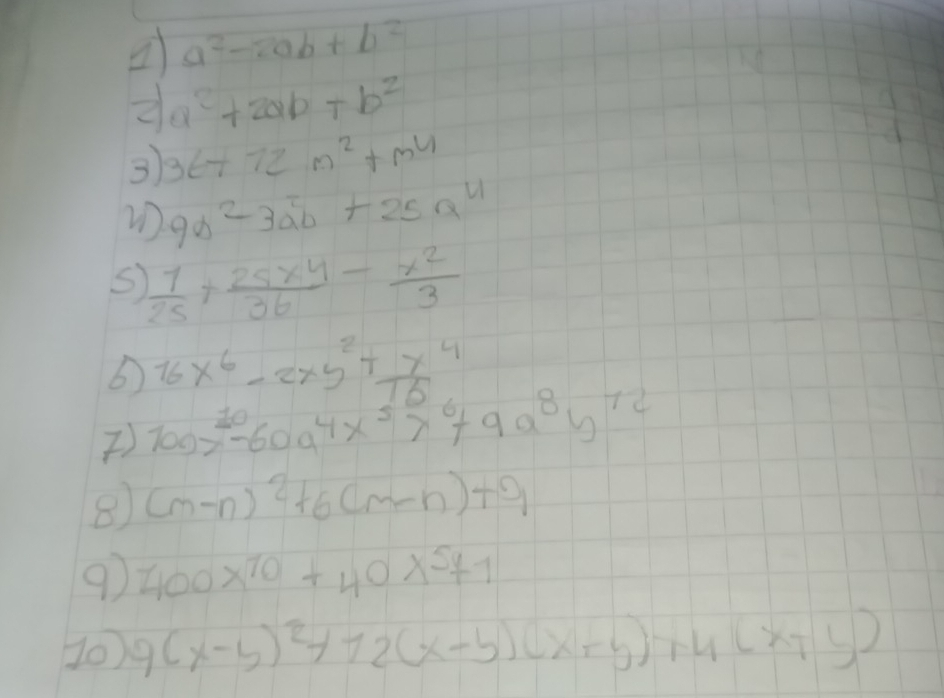 1) a² - 2ab + b²
2) a² + 2ab + b²
3) 36 + 12 m² + m⁴
4) 9b² - 3a²b + 25a⁴
5) 1/25 + 25x⁴/36 - x²/3
6) 16x⁶ - 2xy² + x⁴/16
7) 100x¹⁰ - 60a⁴x⁵ y⁶ + 9a⁸y¹²
8) (m-n)² + 6(m-n) + 9
9) 400x¹⁰ + 40x⁵ + 1
10) 9(x-y)² + 12(x-y)(x+y) + 4(x+y)